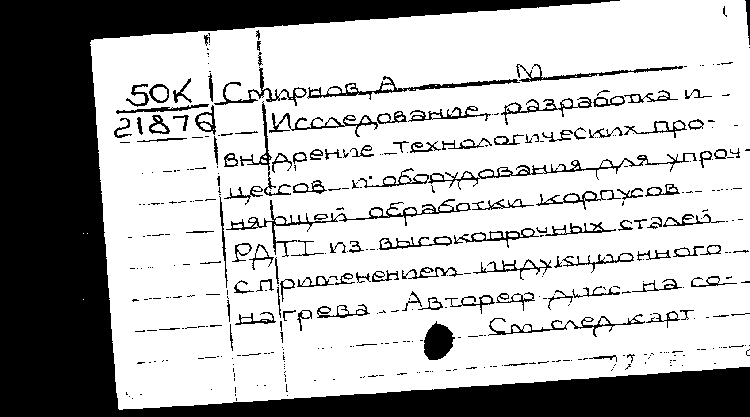 50К Смирнов, А М
21876 Исследование, разработка и
внедрение технологических про-
цессов и оборудования для упроч-
няющей обработки корпусов
РДТТ из высокопрочных сталей
с применением индукционного
нагрева Автореф дисс на со-
См. след карт